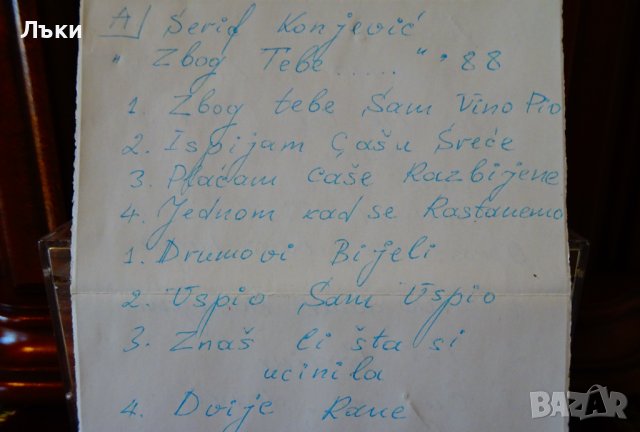 Лъки
A Šerif Konjević
" Zbog Tebe ..... " , 88
1. Zbog tebe Sam Vino Pio
2. Ispijam Čašu Sreće
3. Plaćam čaše Razbijene
4. Jednom kad se Rastanemo
1. Drumovi Bijeli
2. Uspio Sam Uspio
3. Znaš li šta si
učinila
4. Dvije Rane
BAZAR